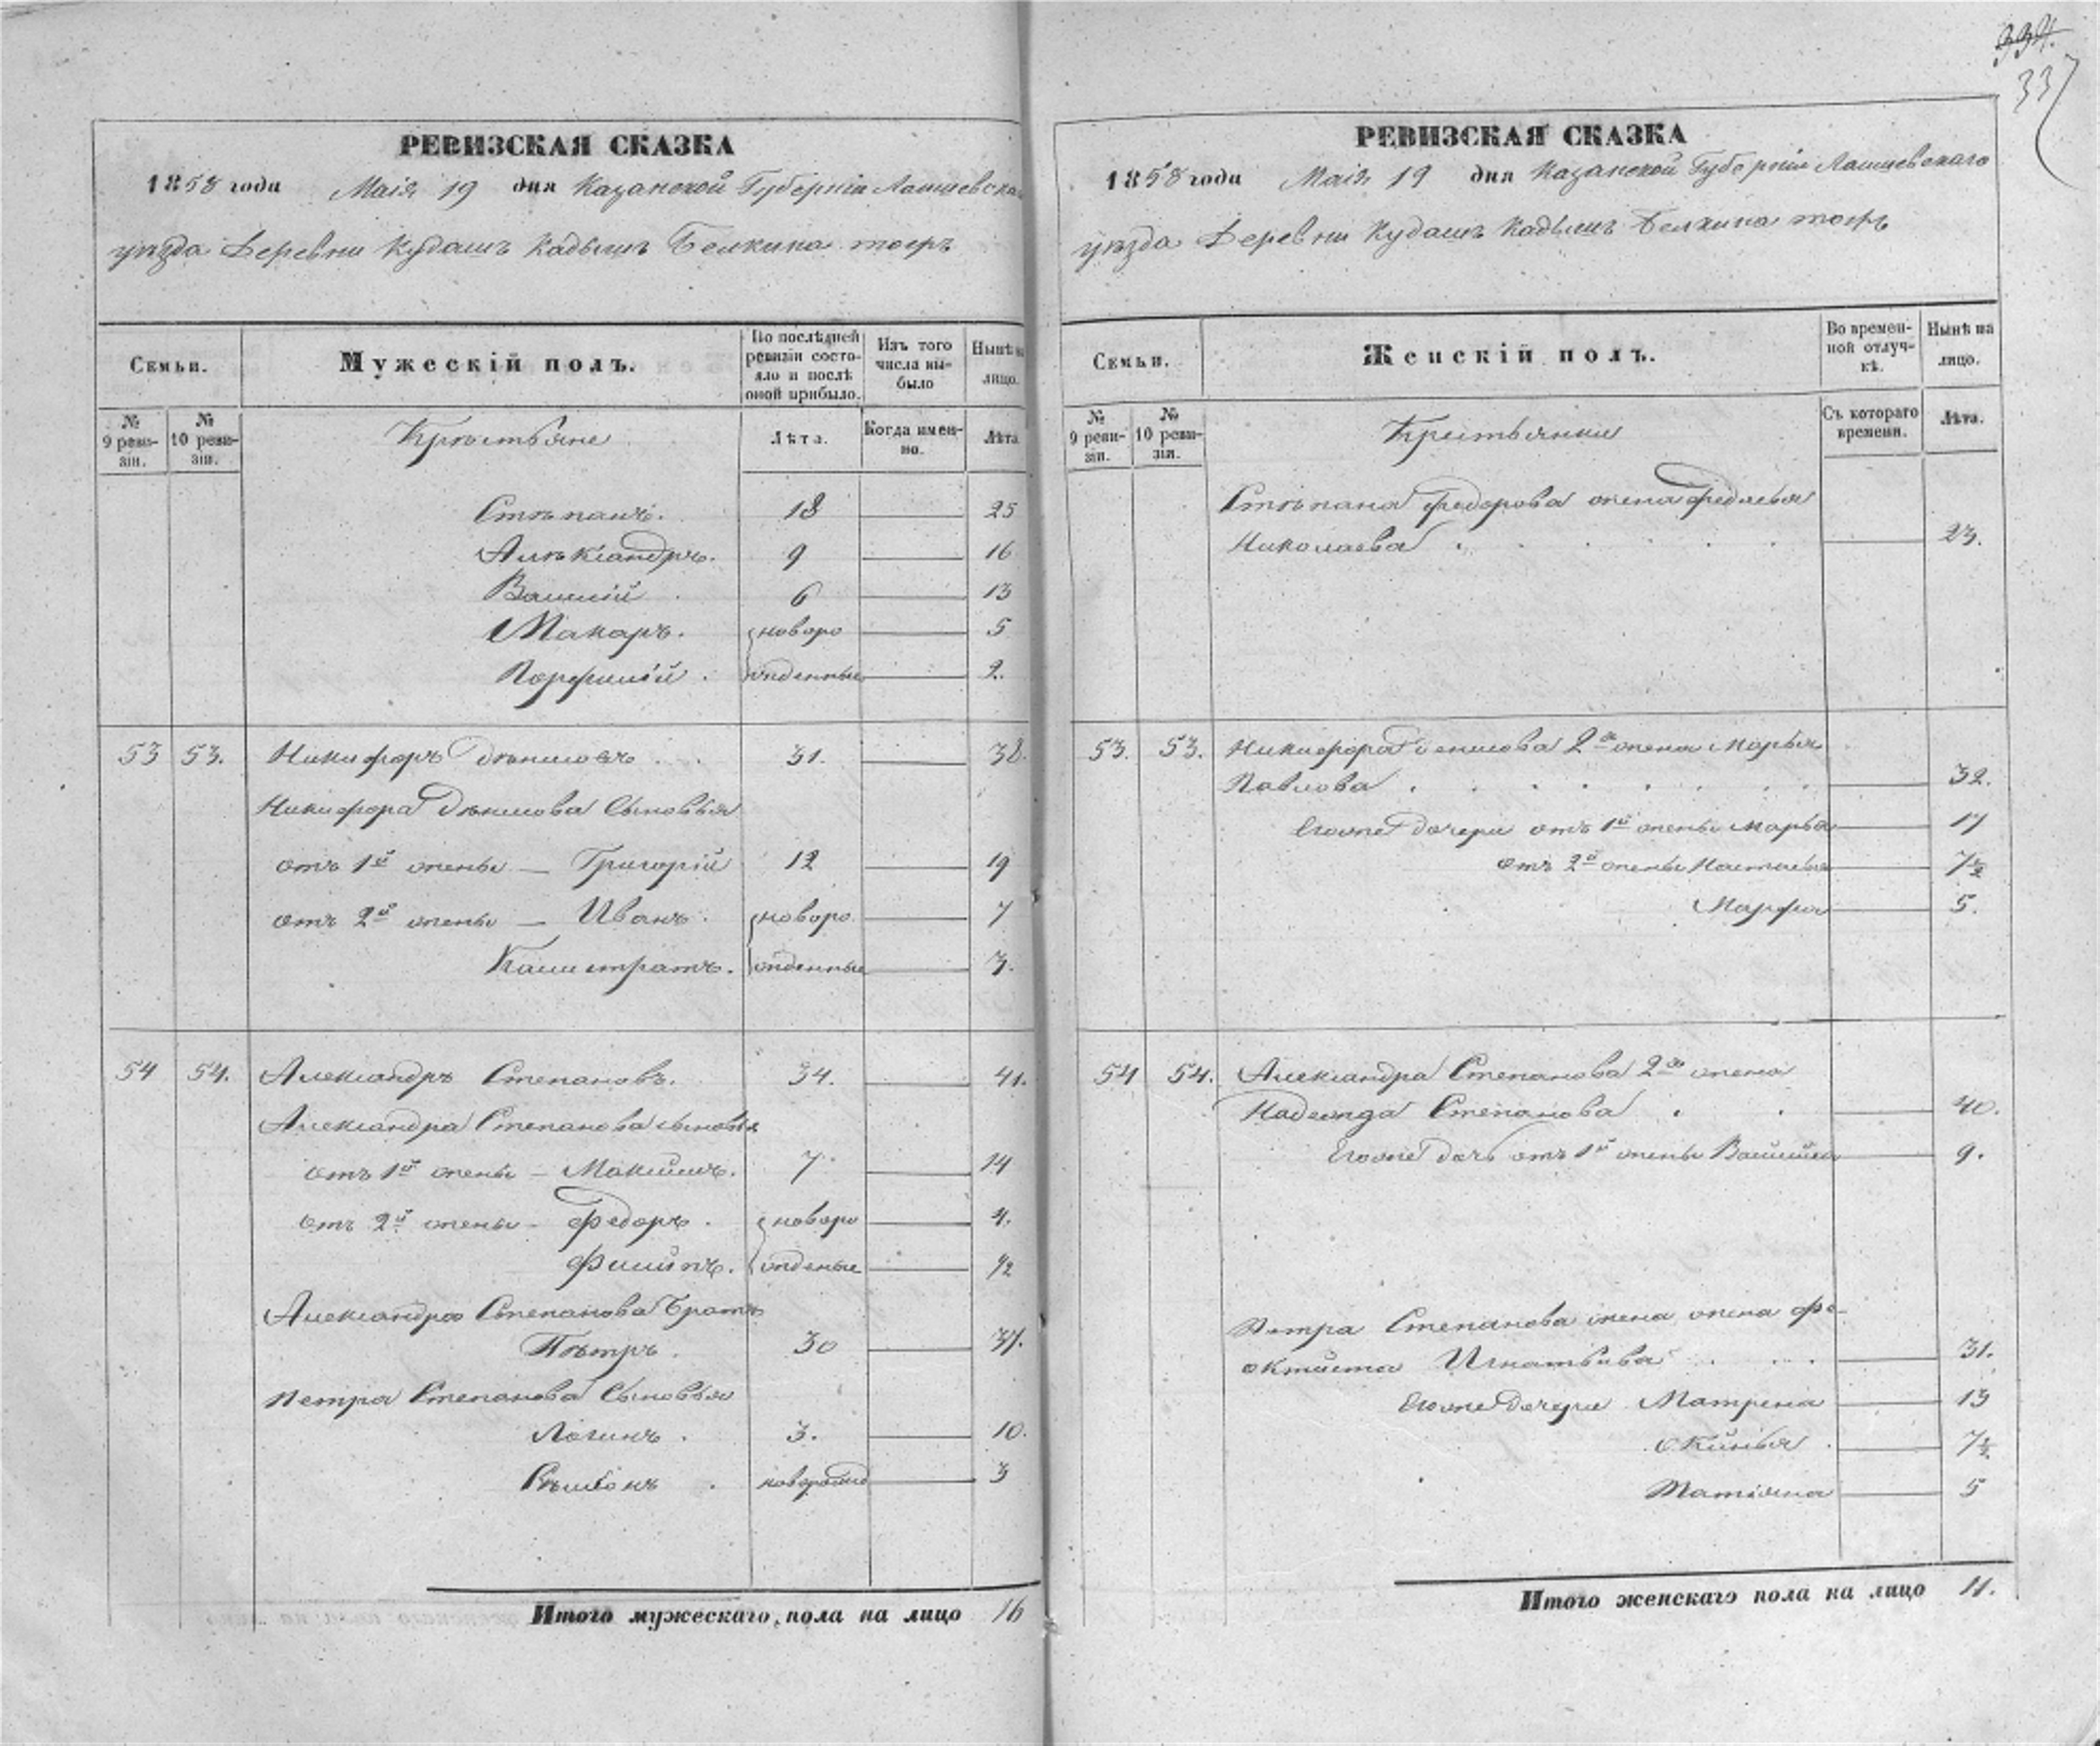 334.
337
РЕВИЗСКАЯ СКАЗКА
1858 года Маія 19 дня Казанской Губерніи Лаишевска
уѣзда Деревни Кудашъ Кадышъ Белкина тожъ
Семьи.
Мужескій полъ.
Во послѣдней ревизіи состояло и послѣ оной прибыло.
Изъ того числа выбыло
Нынѣ на лицо.
№ 9 ревизіи.
№ 10 ревизіи.
Крѣстьяне
Лѣта.
Когда именно.
Лѣта
Стѣпанъ. 18 25
Алѣксандръ. 9 16
Василій 6 13
Макаръ. новоро 5
Порфилій. жденные 2.
53 53. Никифоръ Дѣниловъ 31. 38.
Никифора Дѣнилова Сыновья
отъ 1й жены — Григорій 12 19
отъ 2й жены — Иванъ. новоро 7
Калистратъ. жденные 3.
54 54. Александръ Степановъ. 34. 41.
Александра Степанова сыновья
отъ 1й жены — Максимъ. 7 14
отъ 2й жены - Федоръ. новоро 4.
Филипъ. жденые 1/2
Александра Степанова Братъ
Пѣтръ. 30 37.
Петра Степанова Сыновья
Логинъ. 3. 10.
3
Итого мужескаго пола на лицо 16
РЕВИЗСКАЯ СКАЗКА
1858 года Маія 19 дня Казанской Губерніи Лаишевскаго
уѣзда Деревни Кудашъ Кадышъ Белкина тожъ
Семьи.
Женскій полъ.
Во временной отлучкѣ.
Нынѣ на лицо.
№ 9 ревизіи.
№ 10 ревизіи.
Крестьянки
Съ котораго времени.
Лѣта.
Стѣпана Федорова жена Федосья
Николаева 23.
53. 53. Никифора Денилова 2я жена Марья
Павлова 32.
Еговже дочери отъ 1й жены Марья 17
отъ 2й жены Настасья 7 1/2
Марфа 5.
54 54. Александра Степанова 2я жена
Надежда Степанова 40.
Еговже дочь отъ 1й жены Василиса 9.
Петра Степанова жена жена Фе-
октиста Игнатьева 31.
Еговже дочери Матрена 13
Окинья 7 1/2
Татіяна 5
Итого женскаго пола на лицо 11.